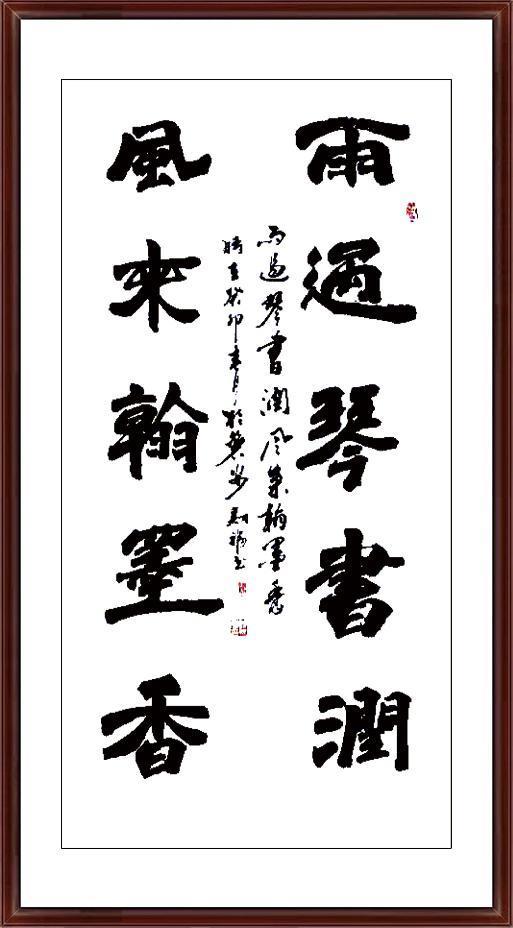 雨過琴書潤
雨過琴書润风來翰墨香
時在癸卯春月於
風來翰墨香